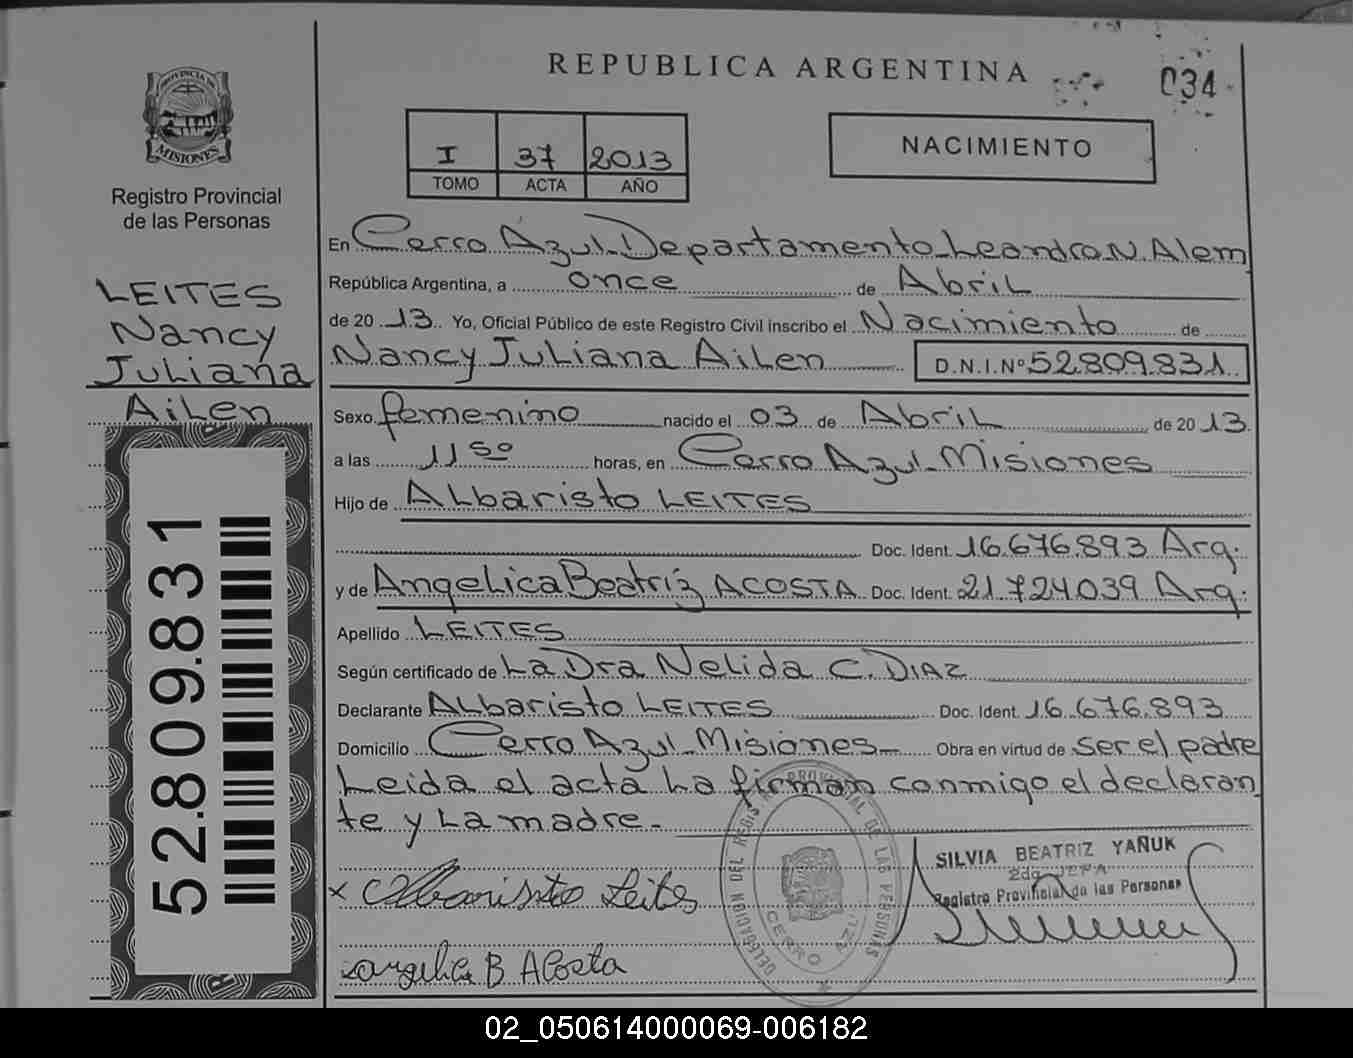 REPUBLICA ARGENTINA
034
PROVINCIA DE
MISIONES
Registro Provincial
de las Personas
I 37 2013
TOMO ACTA AÑO
NACIMIENTO
LEITES
Nancy
Juliana
Ailen
52.809.831
En Cerro Azul - Departamento - Leandro N. Alem
República Argentina, a once de Abril
de 20 13 Yo, Oficial Público de este Registro Civil inscribo el Nacimiento de
Nancy Juliana Ailen D.N.I.Nº 52.809.831
Sexo femenino nacido el 03 de Abril de 20 13
a las 11 50 horas, en Cerro Azul - Misiones
Hijo de Albaristo LEITES
Doc. Ident. 16.676.893 Arg.
y de Angelica Beatriz ACOSTA Doc. Ident. 21.724.039 Arg.
Apellido LEITES
Según certificado de La Dra Nelida C. DIAZ
Declarante Albaristo LEITES Doc. Ident. 16.676.893
Domicilio Cerro Azul - Misiones - Obra en virtud de ser el padre
Leida el acta la firman conmigo el declaran
te y la madre.-
SILVIA BEATRIZ YAÑUK
2da JEFA
Registro Provincial de las Personas
x Albaristo Leites
Angelica B Acosta
DELEGACION DEL REGISTRO PROVINCIAL DE LAS PERSONAS
CERRO AZUL
02_050614000069-006182